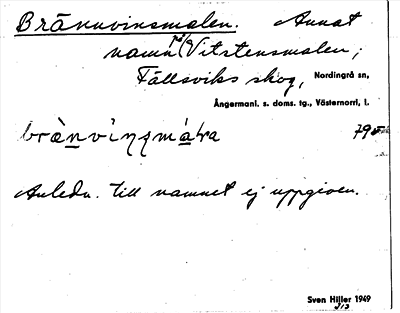 Brännvinsmalen. Annat
namn på Vitstensmalen;
Fällsviks skog, Nordingrå sn,
Ångermanl. s. doms. tg., Västernorrl. l.
Anledn. till namnet ej uppgiven.
Sven Hiller 1949